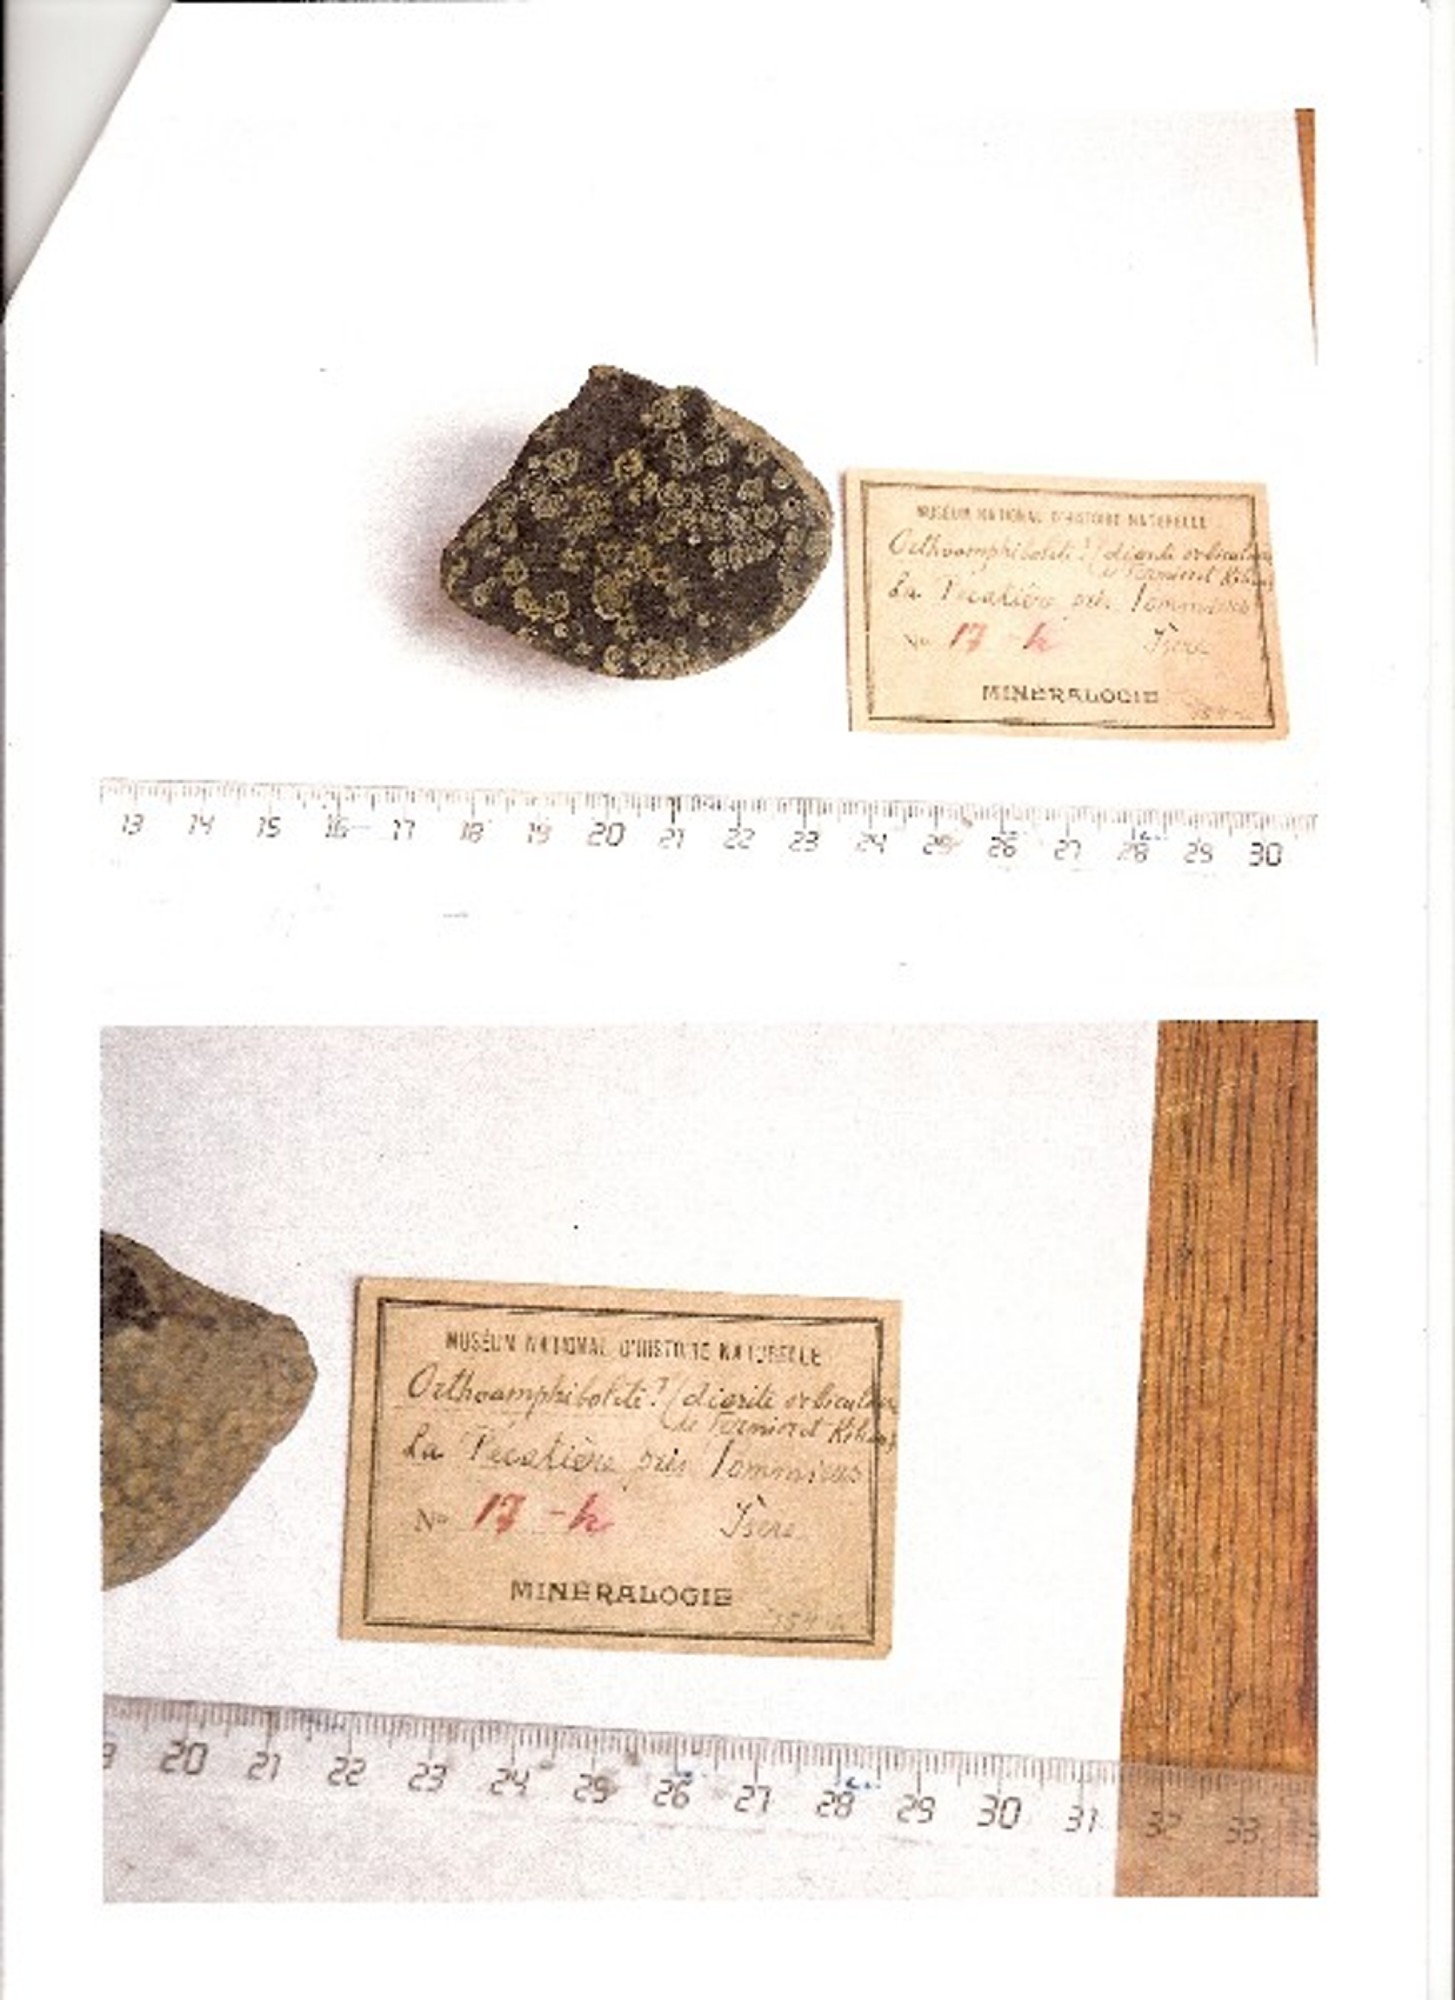 MUSÉUM NATIONAL D'HISTOIRE NATURELLE
Orthoamphibolite? (diorite orbiculaire
de Termier et Kilian)
La Pecatière près Pommiers
No 17 - h Isère
MINÉRALOGIE
13 14 15 16 17 18 19 20 21 22 23 24 25 26 27 28 29 30
MUSÉUM NATIONAL D'HISTOIRE NATURELLE
Orthoamphibolite? (diorite orbiculaire
de Termier et Kilian)
La Pecatière près Pommiers
No 17 - h Isère
MINÉRALOGIE
20 21 22 23 24 25 26 27 28 29 30 31 32 33